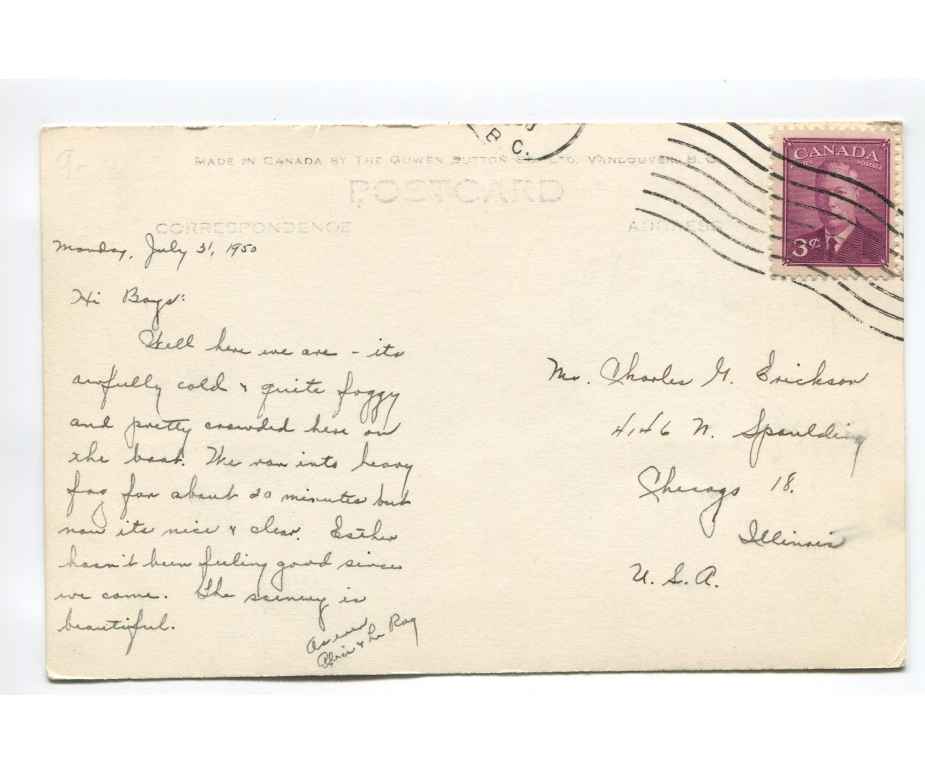 B. C.
MADE IN CANADA BY THE GOWEN SUTTON CO. LTD. VANCOUVER, B. C.
POSTCARD
CORRESPONDENCE
ADDRESS
CANADA
POSTES POSTAGE
3¢
Monday, July 31, 1950
Hi Boys:
Well here we are - its
awfully cold & quite foggy
and pretty crowded here on
the boat. We ran into heavy
fog for about 20 minutes but
now its nice & clear. Esther
hasn't been feeling good since
we came. The scenery is
beautiful.
As ever
& Le Roy
Mr. Charles G. Erickson
4146 N. Spaulding
Chicago 18.
Illinois
U. S. A.